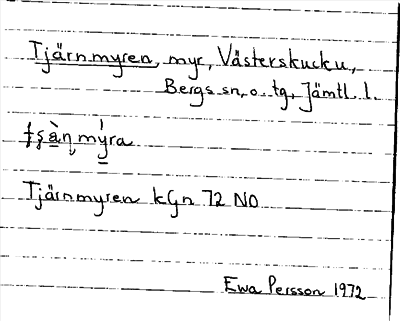 Tjärnmyren, myr, Västerskucku,
Bergs sn, o. tg, Jämtl. l.
myra
Tjärnmyren kGn 72 NO
Ewa Persson 1972